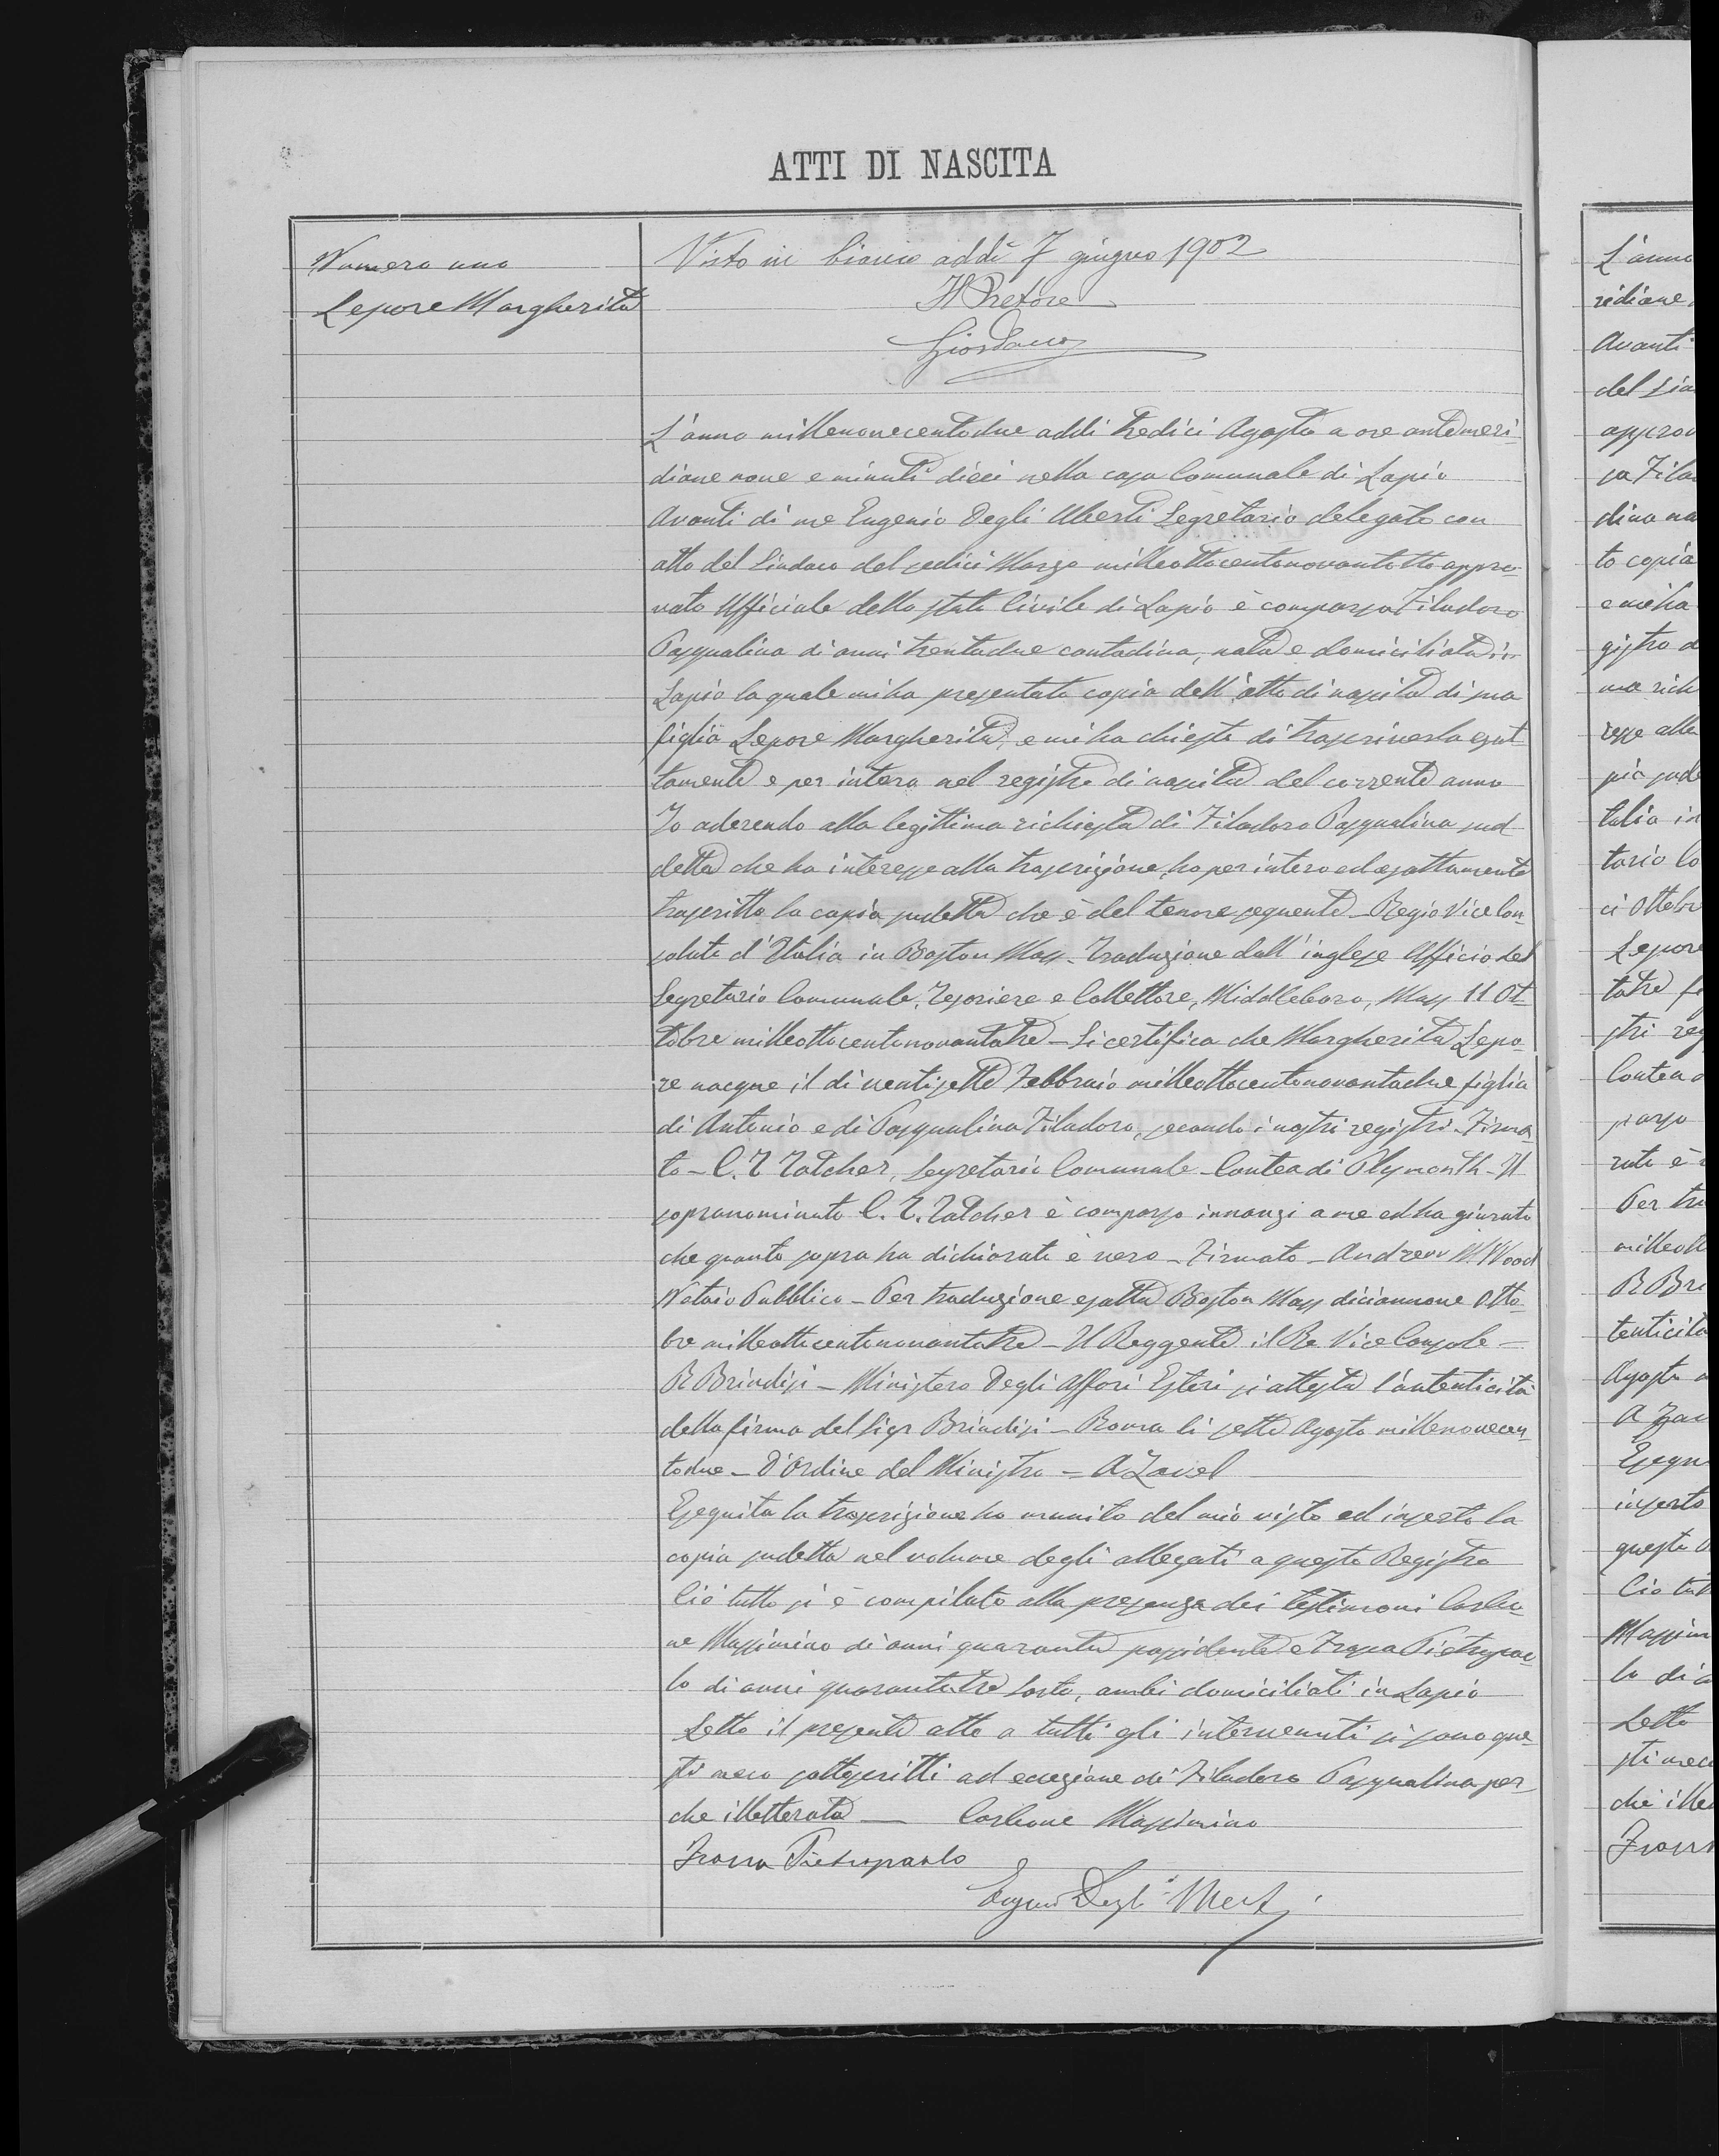 ATTI DI NASCITA
Numero uno
Lepore Margherita
Visto in bianco addì 7 giugno 1902
Il Pretore
Giordano
L'anno millenovecentodue addì tredici Agosto a ore antimeri-
diane nove e minuti dieci nella casa Comunale di Lapio
Avanti di me Eugenio Degli Uberti Segretario delegato con
atto del Sindaco del sedici Marzo milleottocentonovantotto appro-
vato Ufficiale dello Stato Civile di Lapio è comparsa Filadoro
Pasqualina di anni trentadue contadina, nata e domiciliata in
Lapio la quale mi ha presentato copia dell'atto di nascita di sua
figlia Lepore Margherita, e mi ha chiesto di trascriverla esat-
tamente e per intero nel registro di nascita del corrente anno
Io aderendo alla legittima richiesta di Filadoro Pasqualina sud-
detta che ha interesse alla trascrizione, ho per intero ed esattamente
trascritto la copia sudetta che è del tenore seguente - Regio Vice Con-
solato d'Italia in Boston Mass - Traduzione dall'inglese Ufficio del
Segretario Comunale, Tesoriere e Collettore, Middleboro, Mass 11 Ot-
tobre milleottocentonovantatre - Si certifica che Margherita Lepo-
re nacque il dì ventisette Febbraio milleottocentonovantadue figlia
di Antonio e di Pasqualina Filadoro, secondo i nostri registri - Firma-
to - C. T. Tatcher, Segretario Comunale - Contea di Plymonth - Il
sopranominato C. T. Tatcher è comparso innanzi a me ed ha giurato
che quanto sopra ha dichiarato è vero - Firmato - Andrew M. Wood
Notaio Pubblico - Per traduzione esatta Boston Mass diciannove Otto-
bre milleottocentonovantatre - Il Reggente il Re Vice Console -
R Brindisi - Ministero Degli Affari Esteri si attesta l'autenticità
della firma del Sigr Brindisi - Roma li sette Agosto millenovecen-
todue - D'Ordine del Ministro = A
Eseguita la trascrizione ho munito del mio visto ed inserto la
copia sudetta nel volume degli allegati a questo Registro
Ciò tutto si è compilato alla presenza dei testimoni Carbo-
ne Massimino di anni quaranta possidente e Pietropao-
lo di anni quarantatre Sarto, ambi domiciliati in Lapio
Letto il presente atto a tutti gli intervenuti si sono que-
sti meco sottoscritti ad eccezione di Filadoro Pasqualina per-
che illetterata - Carbone Massimino
Pietropaolo
Eugenio Degli Uberti
L'anno
ridiane
Avanti
del Sin
approv
sa Filad
dina na
to copia
e mi ha
gistro d
ma rich
resse alla
pia sude
talia in
tario Co
ci Ottobr
Lepore
tatre fi
stri reg
Contea d
parso
rato è
Per tra
milleott
R Bri
tenticità
Agosto m
Esegu
inserto
questo
Ciò tut
Massim
lo di a
Letto
sti meco
chè ille